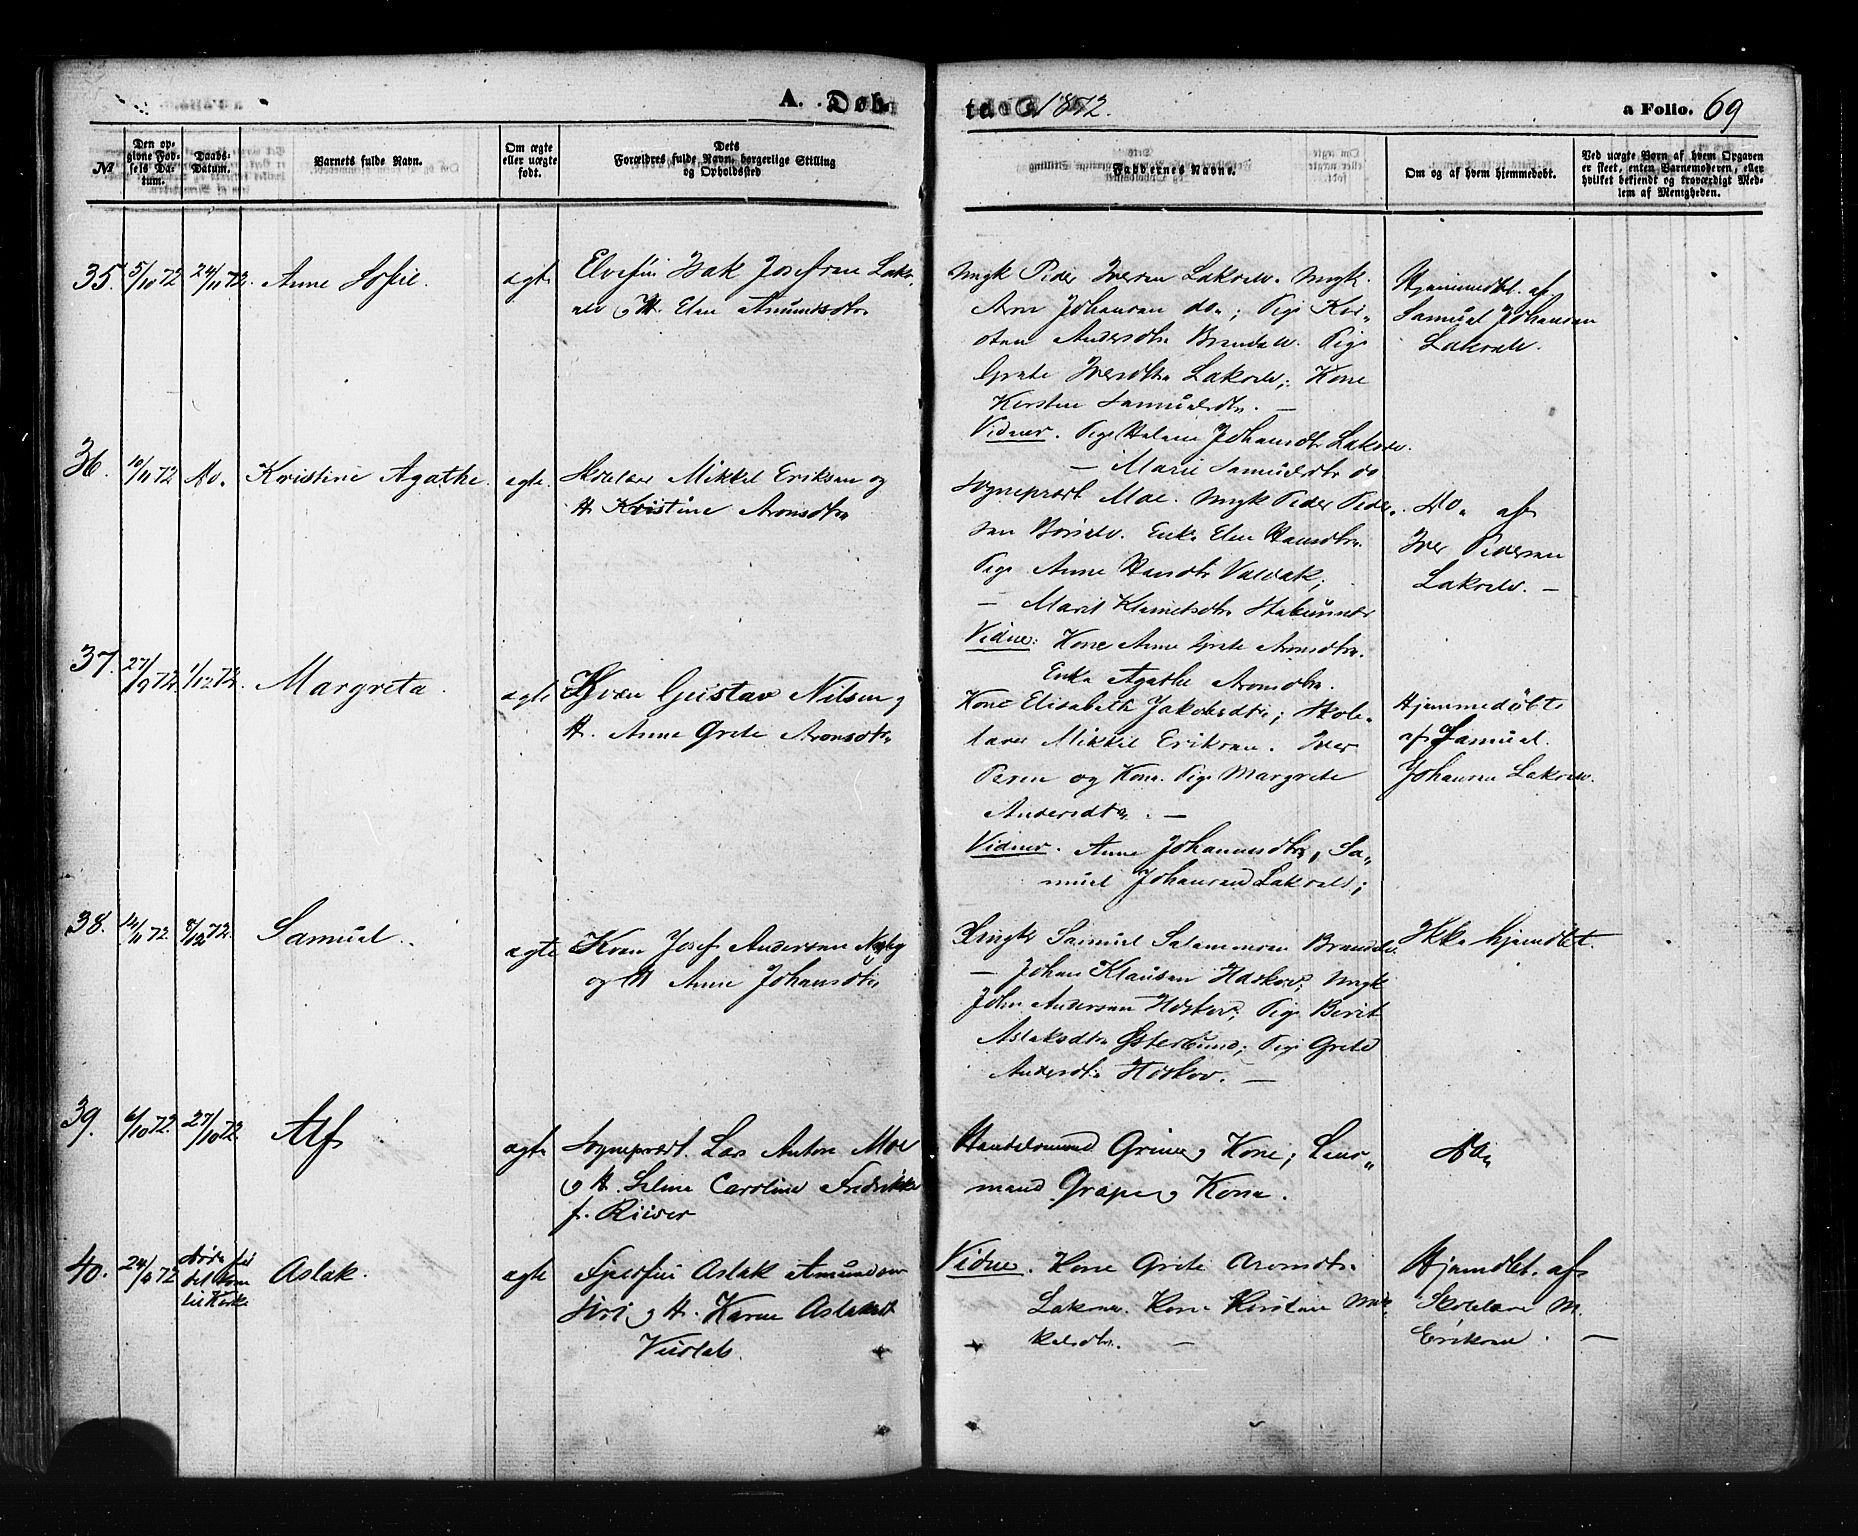 A. Døb
te. 1872.
a Folio. 69
№
Den opgivne Fødsels Datum.
Daabs-Datum.
Barnets fulde Navn.
Om ægte eller uægte født.
Dets
Forældres fulde Navn, borgerlige Stilling
og Opholdssted
Faddernes Navne.
Om og af hvem hjemmedøbt.
Ved uægte Børn af hvem Opgaven
er skeet, enten Barnemoderen, eller
hvilket bekjendt og troværdigt Med-
lem af Menigheden.
35. 5/10 72 24/11 72. Anne Sofie. ægte
Elvefin Isak Josefsen Laks
elv og H. Elen Amundsdtr
Ungk Peder Iversen Lakselv. Ungk.
Aron Johansen do; Pige Kir-
sten Andersdtr Brendelv. Pige
Grete Iversdtr Lakselv; Kone
Kirsten Samuelsdtr. —
Vidner. Pige Helene Johansdtr Lakselv.
— Marie Samuelsdtr do
Hjemmedbt. af
Samuel Johansen
Lakselv.
36. 10/11 72 Do. Kristine Agathe. ægte.
Skolelær Mikkel Eriksen og
H. Kristine Aronsdtr
Sogneprest Moe. Ungk Peder Peder-
sen Børselv. Enke Elen Hansdtr.
Pige Anne Hansdtr Valvak;
— Marit Klemetsdtr Stabursnes
Vidne: Kone Anne Grete Aronsdtr.
Enke Agathe Aronsdtr.
Do. af
Iver Pedersen
Lakselv. —
37. 27/9 72 1/12 72. Margreta. ægte
Kvæn Gustav Nilsen og
H. Anne Grete Aronsdtr
Kone Elisabeth Jakobsdtr; Skole-
lærer Mikkel Eriksen. Iver
Persen og Kone. Pige Margrete
Andersdtr. —
Vidner. Anne Johannesdtr, Sa-
muel Johansen Lakselv;
Hjemmedøbt
af Samuel
Johansen Lakselv.
38. 14/11 72. 8/12 72. Samuel. ægte
Kvæn Josef Andersen Nyby
og H Anne Johansdtr
Ungk Samuel Salamonsen Brendelv.
— Johan Klausen Hdskov; Ungk
John Andersen Hdskov; Pige Berit
Aslaksdtr Østerbund; Pige Grete
Andersdtr Hdskov. —
Ikke hjemdbt.
39. 6/10 72. 27/10 72. Alf ægte
Sogneprest. Lars Anton Moe
og H. Selma Caroline Fredrikke
f. Riiser
Handelsmand Grim og Kone; Lens-
mand Grape og Kone.
Do
40. 24/ 72 døde før
det kom
til Kirke Aslak. ægte
Fjeldfin Aslak Amundsen
Siri og H. Karen Aslaksdt
Vidne. Kone Grete Aronsdtr
Lakselv. Kone Kirsten Mik-
kelsdtr. —
Hjemdbt. af
Skolelærer M.
Eriksen. —